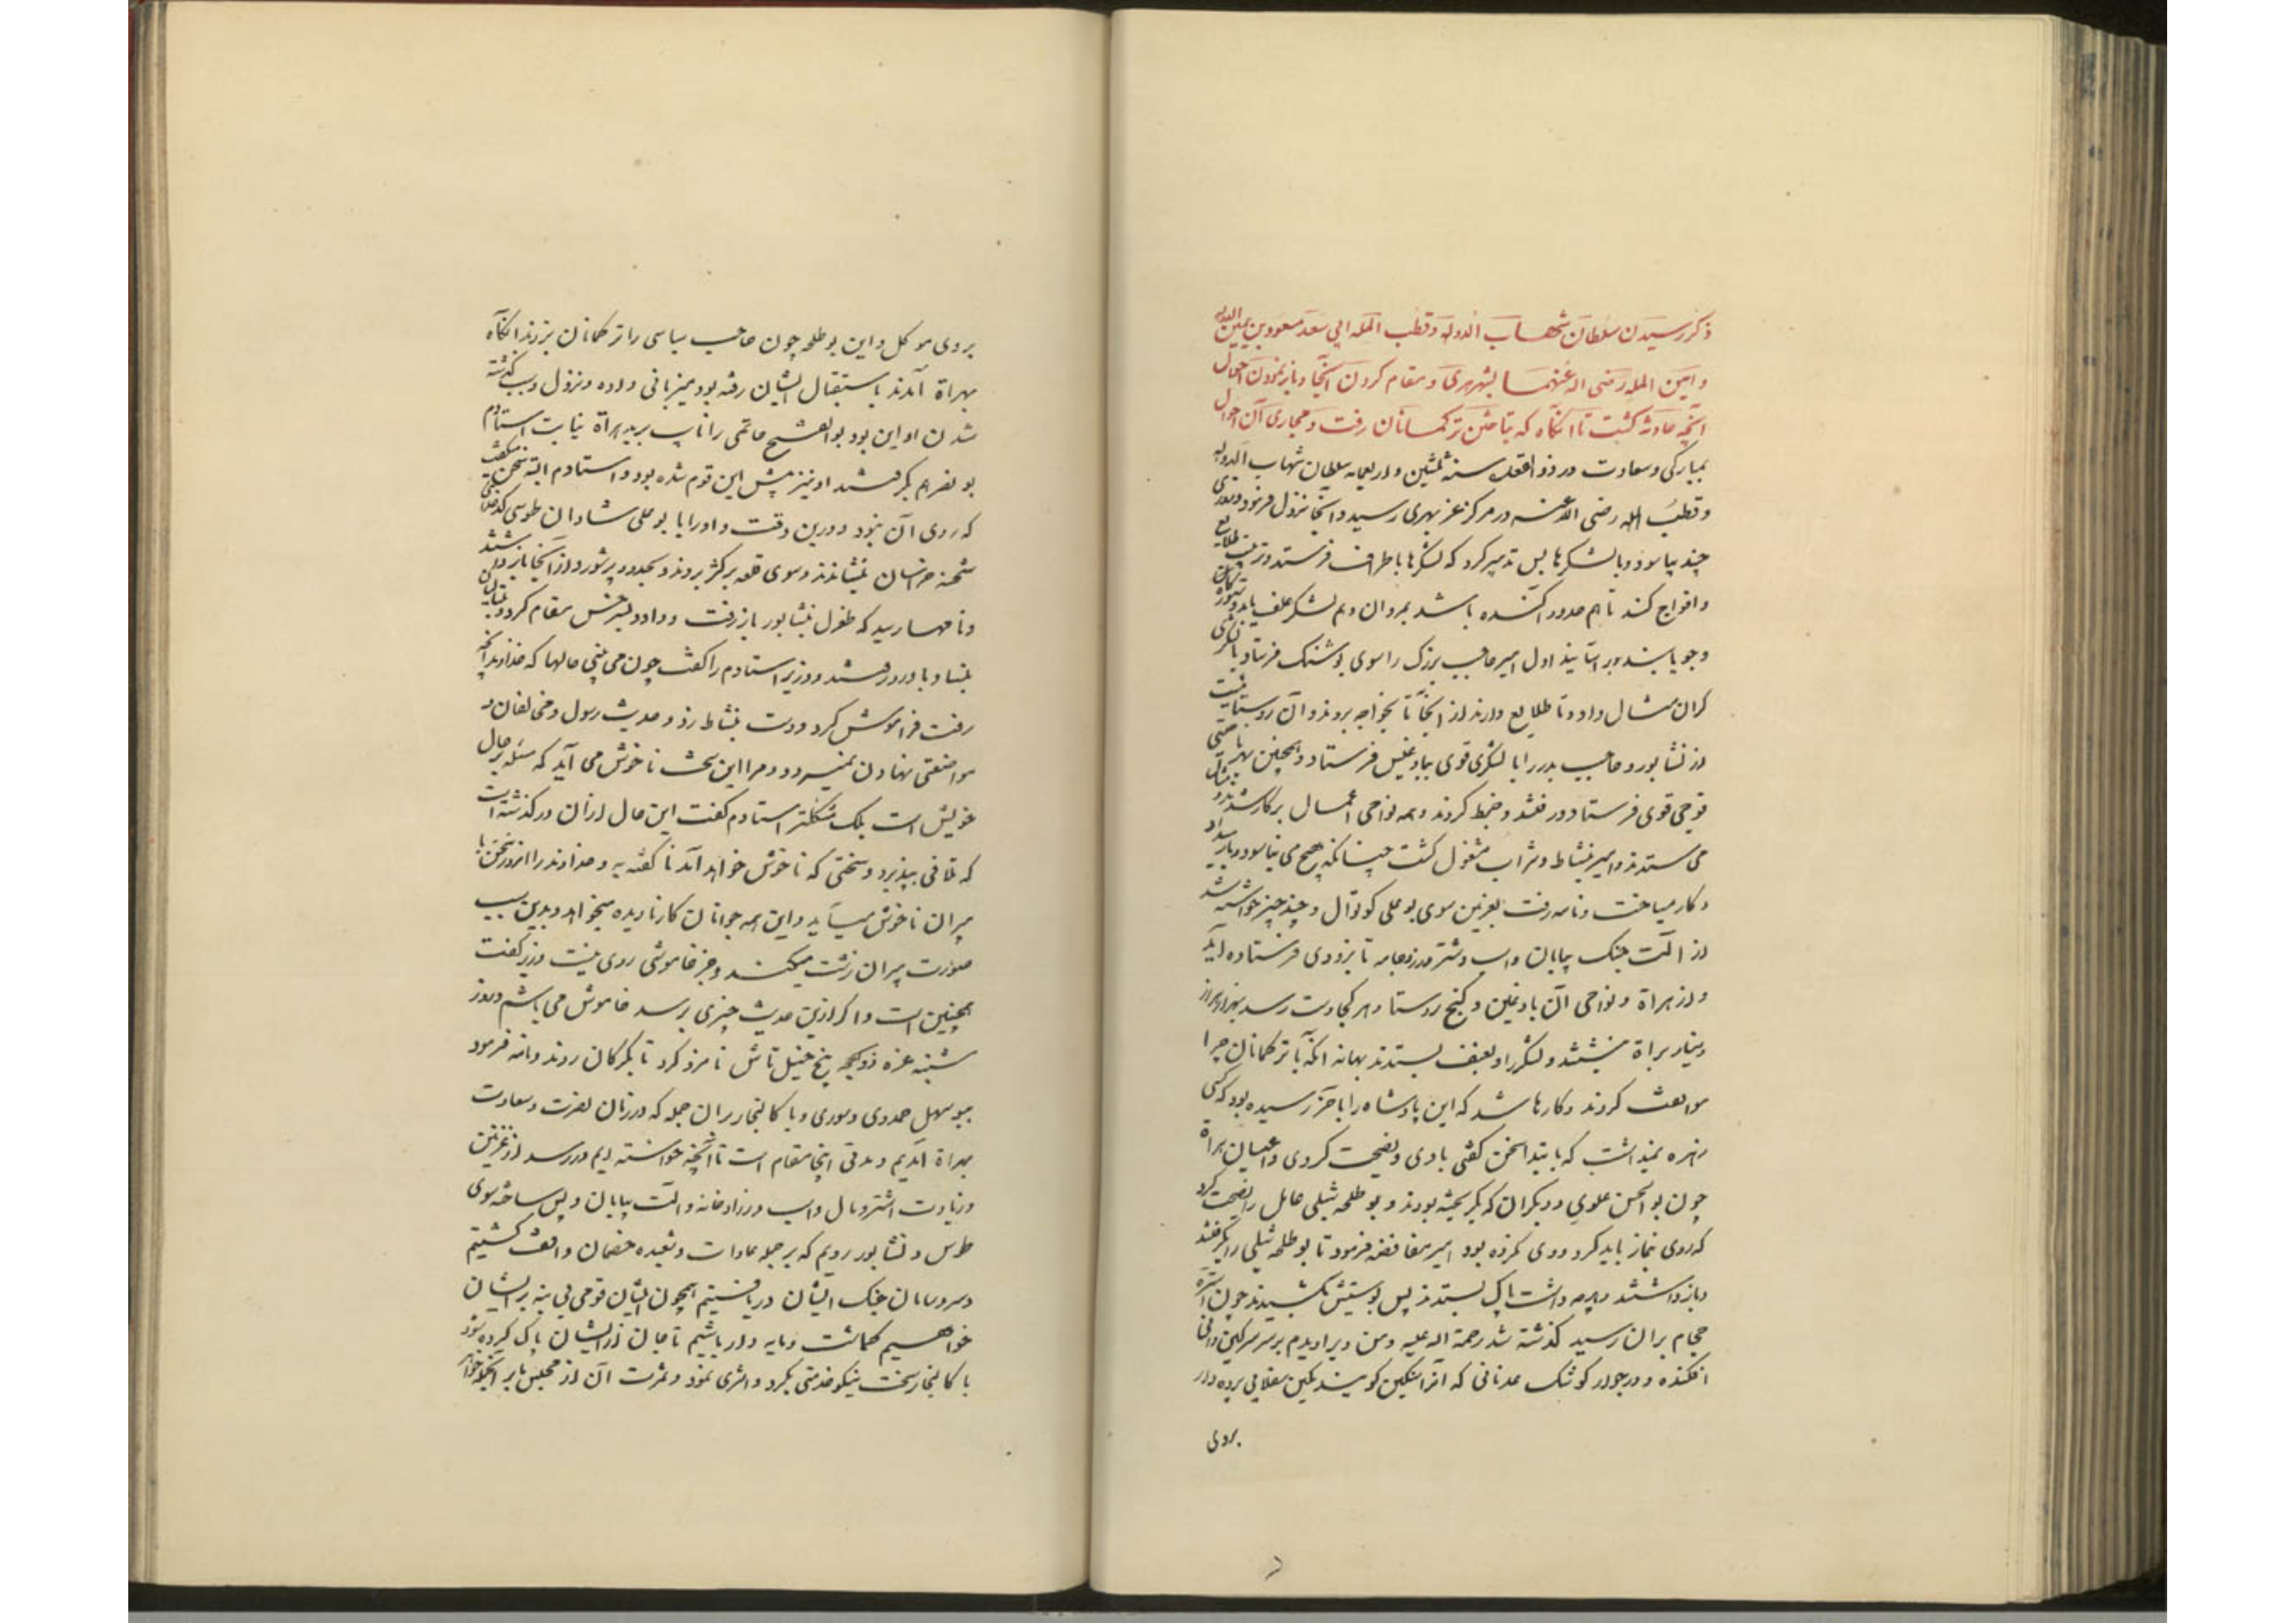 ذکر رسیدن سلطان شهاب الدوله و قطب المله ابی سعد مسعود بن یمین الدوله
و امین المله رضی اله عنهما بشهر هری و مقام کردن آنجا و باز نمودن احوال
آنچه حادثه گشت تا آنگاه که بتاختن ترکمانان رفت و مجاری آن احوال
بمبارکی و سعادت در ذو القعده سنه ثلثین و اربعمایه سلطان شهاب الدوله
و قطب المله رضی الله عنه در مرکز عز بهری رسید و آنجا نزول فرمود و روزی
چند بیاسود و با لشکرها پس تدبیر کرد که لشکرها باطراف فرستد و ترتیب طلایع
و افواج کند تا هم حدود آکنده باشد بمردان و هم لشکر علف یابد و ستوران
و جو یابند و بر آسایند اول امیر حاجب بزرگ را سوی بوشنک فرستاد با لشکری
گران مثال داد و تا طلایع دارند از آنجا تا بخواجه بروند و آن روستاییست
از نشابور و حاجب بدر را با لشکری قوی ببادغیس فرستاد و همچنین بهر ناحیتی
فوجی قوی فرستاد و رفتند و ضبط کردند و همه نواحی اعمال بر کار شدند و مال
می ستدند و امیر بنشاط و شراب مشغول گشت چنانکه هیچ می نیاسود و بار میداد
و کار میساخت و نامه رفت بغزنین سوی بو علی کوتوال و چند چیز خواسته شد
از آلت جنگ بیابان و اسب و شتر و زر و جامه تا بزودی فرستاده آید
و از هراة و نواحی آن بادغیس و گنج روستا و هر کجا دست رسید بهزار هزار
دینار براة نبشتند و لشکر را و بعنف بستدند بهانه آنکه با ترکمانان چرا
موافقت کردند و کارها شد که این پادشاه را باخر رسیده بود و کسی
زهره نمیداشت که بابتدا سخن گفتی با وی و نصیحت کردی و اعیان هراة
چون بو الحسن علوی و دیگران که بگریخته بودند و بو طلحه شیلی عامل را نصیحت کرد
که روی نماز باید کرد و وی نکرده بود امیر مغافضه فرمود تا بو طلحه شیلی را بگرفتند
و باز داشتند و هر چه داشت پاک بستدند پس پوستش بکشیدند چون استره
حجام بران رسید گذشته شد رحمة اله علیه و من ویرا دیدم بر سر سرگین دانی
افکنده و در جوار کوشک عدنانی که آنرا سنگین گویند نگین سقلابی پرده دار
بروی
بروی موکل و این بو طلحه چون حاجب سباسی را ترکمانان بزدند آنگاه
بهراة آمدند باستقبال ایشان رفته بود و میزبانی و داده و نزول و سبب گذشته
شدن او این بود بو الفتح حاتمی را نایب برید هراة نیابت استادم
بو نصر هم بگرفتند او نیز پیش این قوم شده بود و استادم البته سخن نگفت
که روی آن نبود و درین وقت و او را با بو علی شادان طوسی کدخدای
شحنه خراسان بنشاندند و سوی قلعه برکز بردند و بحدود پرشور و از آنجا باز داشتند
و نامها رسید که طغرل بنشابور باز رفت و داود بسرخس مقام کرد و ینالیان
بنسا و باورد رفتند و وزیر استادم را گفت چون می بینی حالها که خداوند آنچه
رفت فراموش کرد و دست بنشاط زد و حدیث رسول و مخالفان و
مواضعتی نهادن نمیرود و مرا این سخت ناخوش می آید که مسئله بر حال
خویش است بلک مشکلتر استادم گفت این حال ازان در گذشته است
که تلافی بپذیرد و سخنی که ناخوش خواهد آمد ناگفته به و خداوند را امروز سخن با
پیران ناخوش میآید و این همه جوانان کارنادیده میخواهد و بدین سبب
صورت پیران زشت میکنند و جز خاموشی روی نیست وزیر گفت
همچنین است و اگر ازین حدیث چیزی پرسد خاموش می باشم و روز
شنبه غره ذو الحجه پنج خیلتاش نامزد کرد تا بگرگان روند و نامه فرمود
ببو سهل حمدوی و سوری و با کالنجار بران جمله که در زمان نصرت و سعادت
بهراة آمدیم و مدتی اینجا مقام است تا آنچه خواسته ایم در رسد از غزنین
و زیادت اشتر و مال و اسب و زرادخانه و آلت بیابان و پس ساخته سوی
طوس و نشابور رویم که بر جمله عادات و شعبده خصمان واقف گشتیم
و سر و سامان جنگ ایشان دریافتیم همچون ایشان قومی بی بنه بر ایشان
خواهیم گماشت و مایه دار باشیم تا جهان از ایشان پاک کرده شود
با کالنجار سخت نیکو خدمتی بکرد و اثری نمود و ثمرت آن از مجلس ما بر آنجمله خواهد